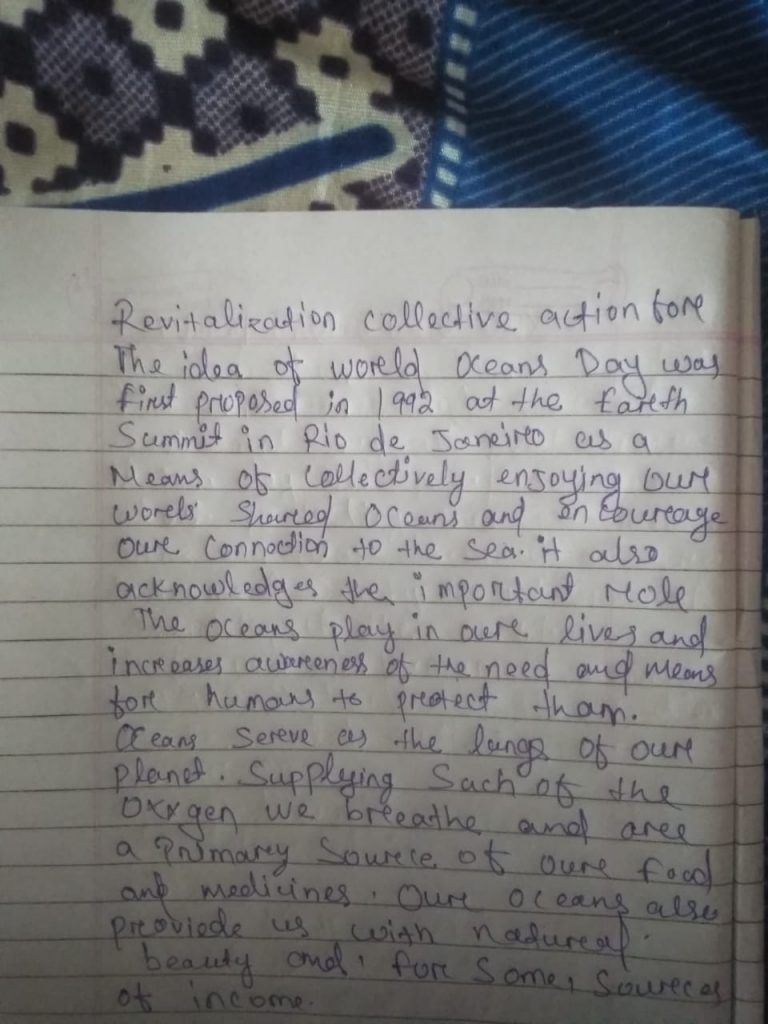 Revitalization collective action fore
The idea of world Oceans Day was
first proposed in 1992 at the Eareth
Summit in Rio de Janeireo as a
Means of Collectively enjoying oure
worels Shareed Oceans and en coureage
oure Connoction to the sea. it also
acknowledges the important reole
The oceans play in oure lives and
increases awareeness of the need and means
fore humans to pretect tham.
Oceans sereve as the lungs of oure
planet. Supplying Sach of the
Oxygen we breeathe and aree
a Primarey Sourece of oure food
and medicines. Oure oceans also
preoviede us with natureal.
beauty and, for some, soureces
of income.